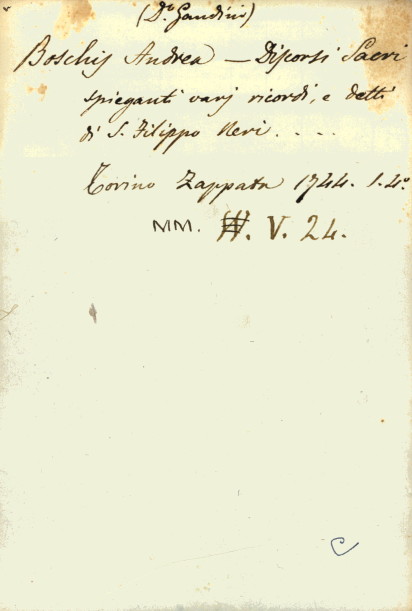 (Dr. Gandini)
Boschis Andrea — Discorsi Sacri
spieganti varj ricordi, e detti
di S. Filippo Neri . . . .
Torino Zappata 1744. 1. 4°.
MM. V. 24.
C